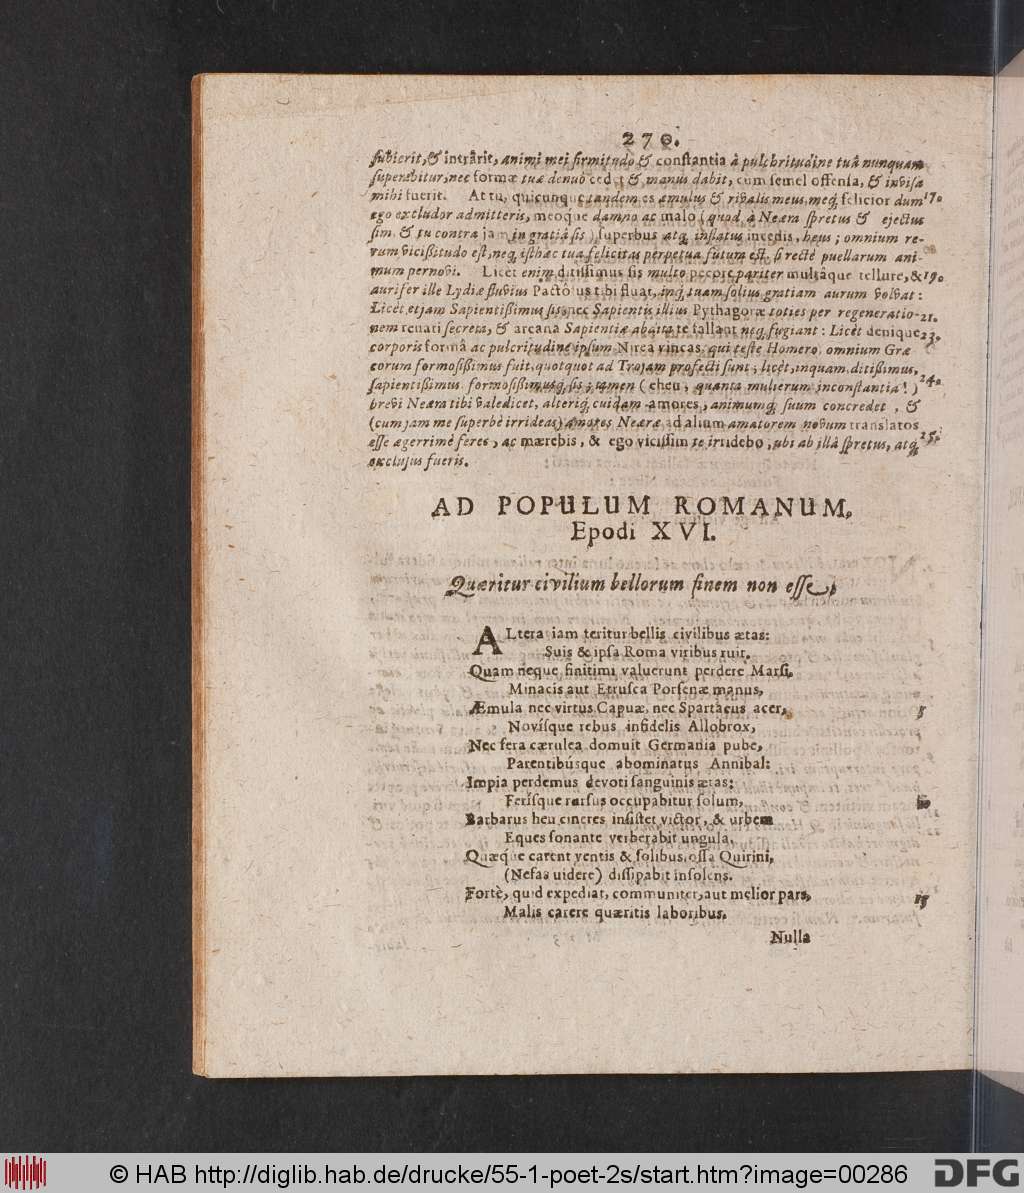 270.
subierit, & intrârit, animi mei firmitudo & constantia à pulchritudine tuâ nunquam
superabitur, nec formæ tuæ denuò cedet & manus dabit, cum semel offensa, & invisa
mihi fuerit. At tu, quicunque tandem es æmulus & rivalis meus, meq; felicior dum 170
ego excludor admitteris, meoque damno ac malo (quod à Neæra spretus & ejectus
sim, & tu contra jam in gratiâ sis) superbus atq; inflatus incedis, heus; omnium re-
rum vicißitudo est, neq; isthæc tua felicitas perpetua futura est, si rectè puellarum ani-
mum pernovi. Licèt enim ditissimus sis multo pecore pariter multâque tellure, & 190
aurifer ille Lydiæ fluvius Pactôlus tibi fluat, inq; tuam solius gratiam aurum volvat:
Licèt etjam Sapientißimus sis, nec Sapientis illius Pythagoræ toties per regeneratio- 21.
nem renati secreta, & arcana Sapientiæ abdita te fallant neq; fugiant: Licèt denique 23.
corporis formâ ac pulcritudine ipsum Nirea vincas, qui teste Homero, omnium Græ
corum formosißimus fuit, quotquot ad Trojam profecti sunt; licèt, inquam, ditißimus,
sapientißimus, formosißimusq; sis; tamen (eheu, quanta mulierum inconstantia!) 240
brevi Neæra tibi valedicet, alteriq; cuidam amores, animumq; suum concredet, &
(cum jam me superbè irrideas) amores Neæræ ad alium amatorem novum translatos
esse ægerrimè feres, ac mærebis, & ego vicissim te irridebo, ubi ab illâ spretus, atq; 25.
exclusus fueris.
AD POPULUM ROMANUM,
Epodi XVI.
Quæritur civilium bellorum finem non esse,
ALtera iam teritur bellis civilibus ætas:
Suis & ipsa Roma viribus ruit.
Quam neque finitimi valuerunt perdere Marsi,
Minacis aut Etrusca Porsenæ manus,
Æmula nec virtus Capuæ, nec Spartacus acer, 5
Novísque rebus infidelis Allobrox,
Nec fera cærulea domuit Germania pube,
Parentibúsque abominatus Annibal:
Impia perdemus devoti sanguinis ætas:
Ferísque rursus occupabitur solum, 10
Barbarus heu cineres insistet victor, & urbem
Eques sonante verberabit ungula,
Quæque carent ventis & solibus, ossa Quirini,
(Nefas uidere) dissipabit insolens.
Fortè, quid expediat, communiter, aut melior pars, 15
Malis carere quæritis laboribus.
Nulla
© HAB http://diglib.hab.de/drucke/55-1-poet-2s/start.htm?image=00286
DFG